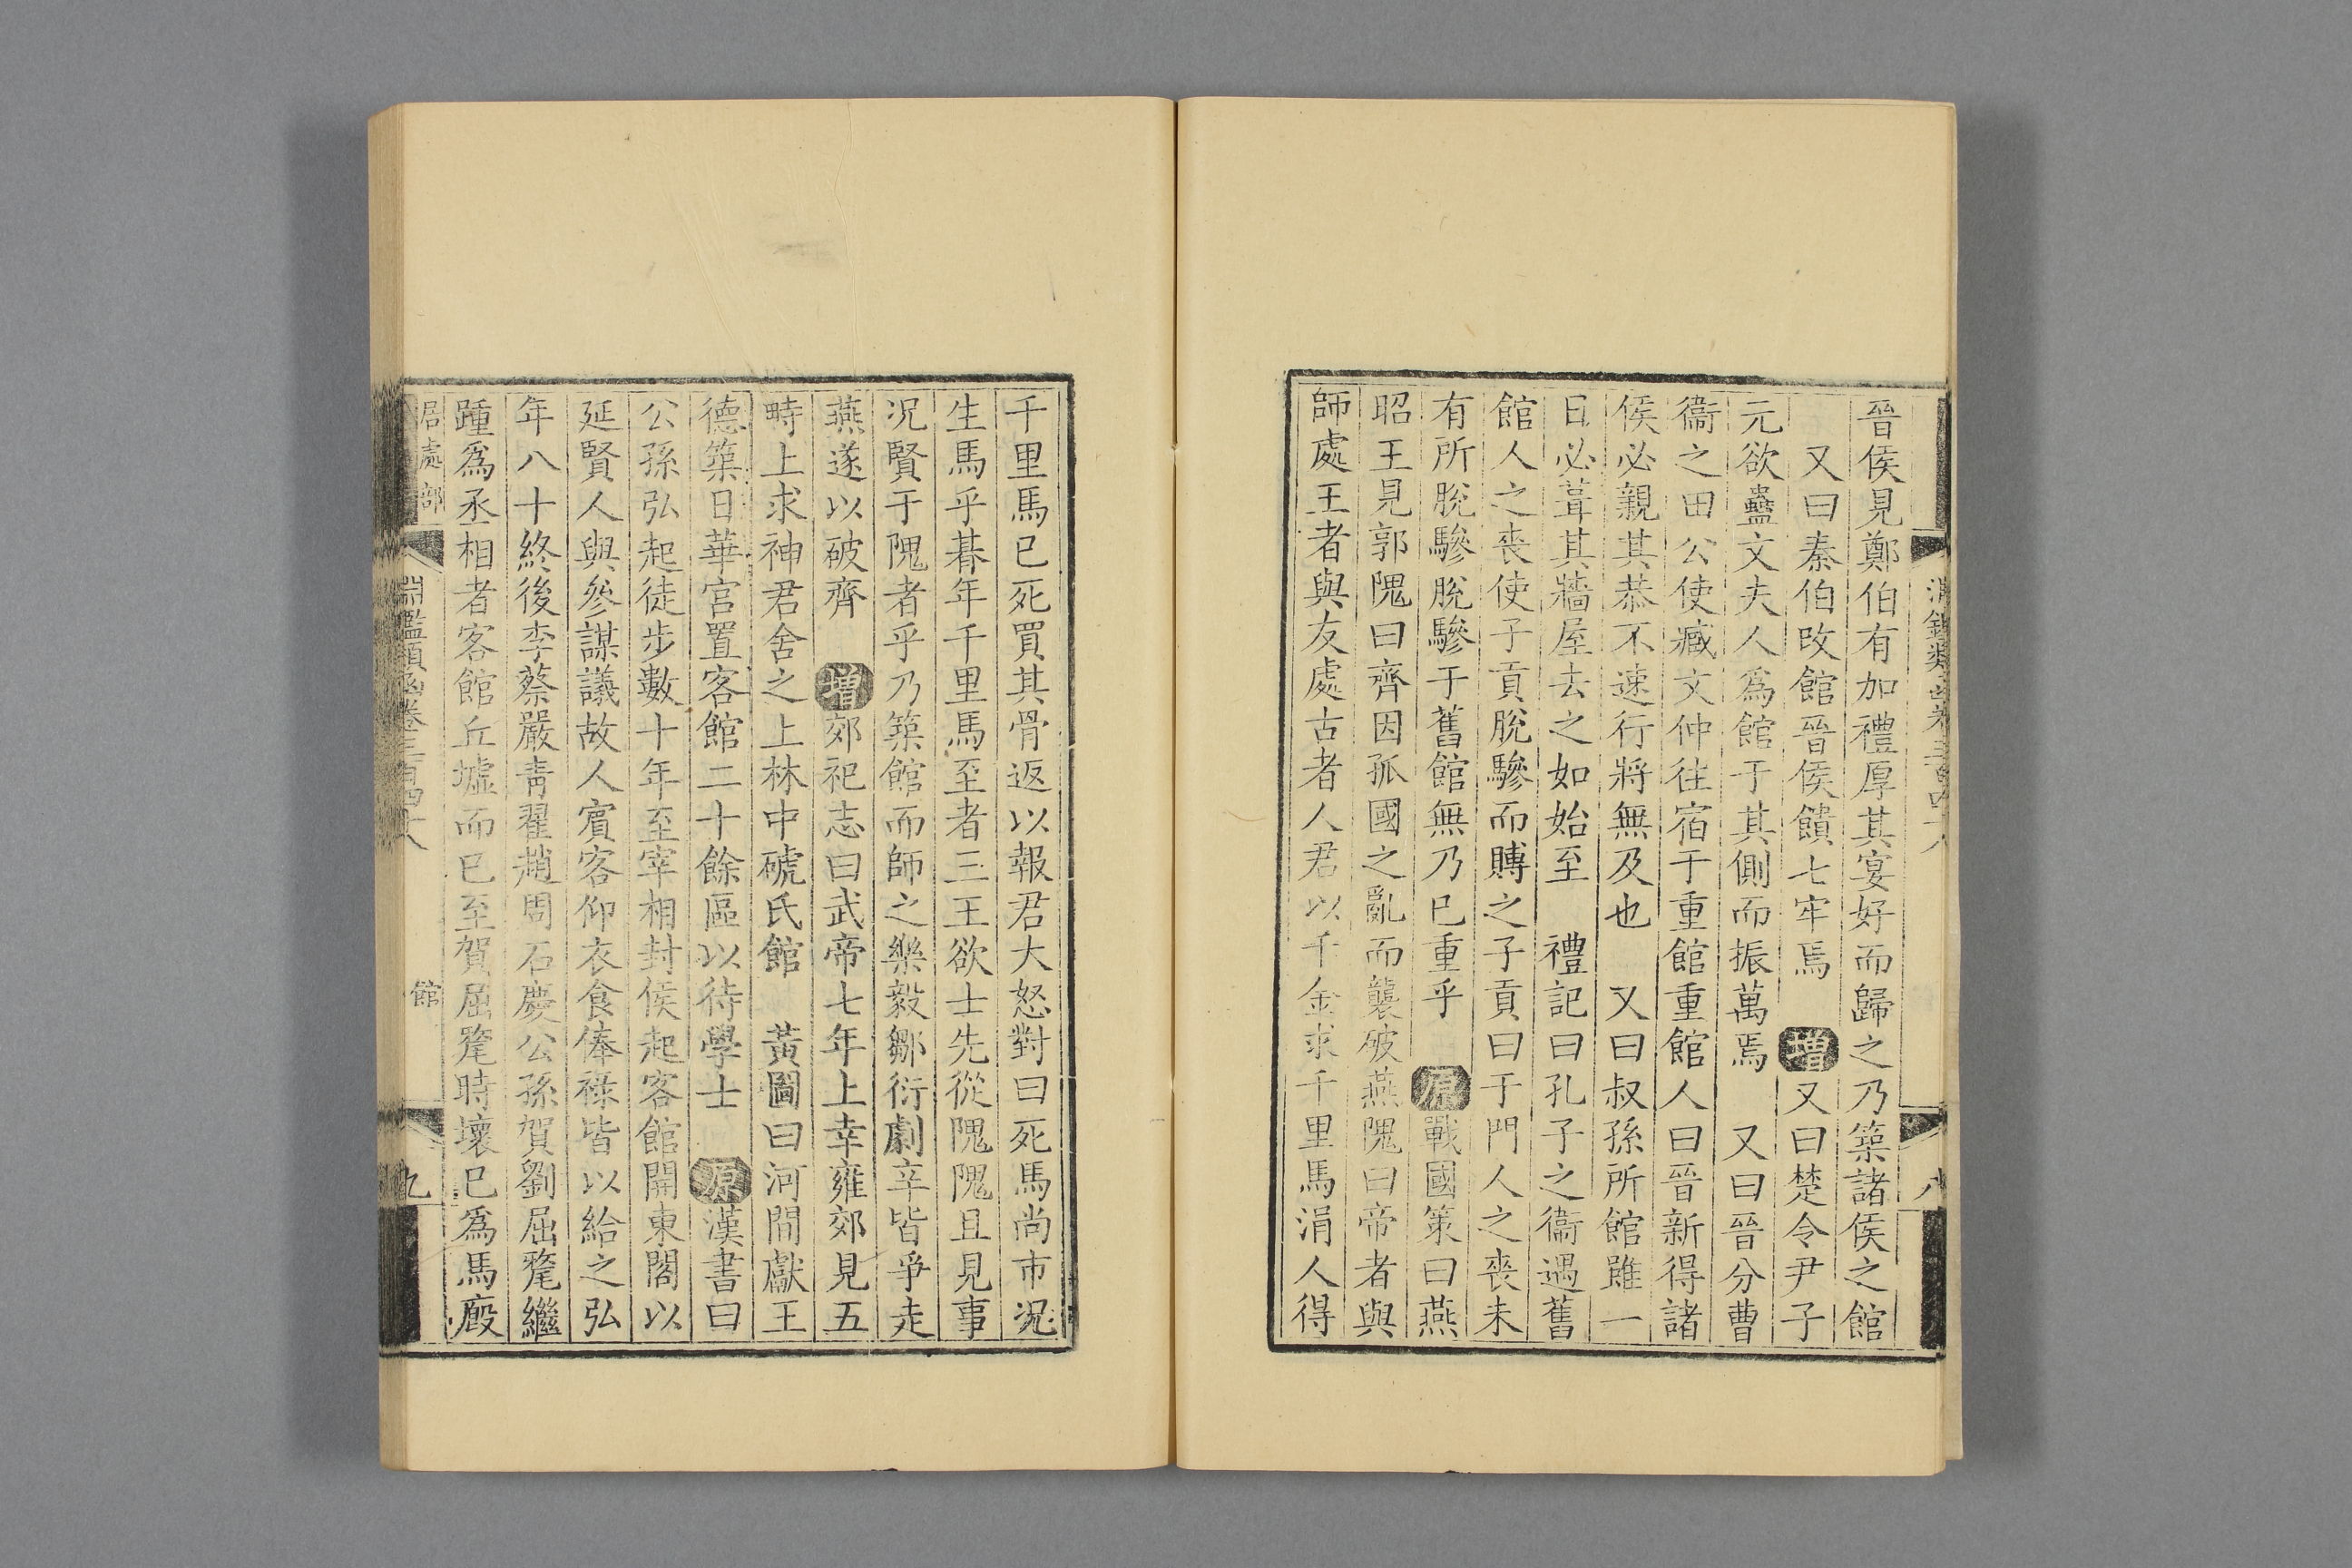 晉侯見鄭伯有加禮厚其宴好而歸之乃築諸侯之館
又曰秦伯改館晉侯饋七牢焉 增 又曰楚令尹子
元欲蠱文夫人爲館于其側而振萬焉 又曰晉分曹
衞之田公使臧文仲往宿于重館重館人曰晉新得諸
侯必親其恭不速行將無及也 又曰叔孫所館雖一
日必葺其牆屋去之如始至 禮記曰孔子之衞遇舊
館人之喪使子貢脫驂而賻之子貢曰于門人之喪未
有所脫驂脫驂于舊館無乃已重乎 原 戰國策曰燕
昭王見郭隗曰齊因孤國之亂而襲破燕隗曰帝者與
師處王者與友處古者人君以千金求千里馬涓人得
千里馬已死買其骨返以報君大怒對曰死馬尚市況
生馬乎朞年千里馬至者三王欲士先從隗隗且見事
況賢于隗者乎乃築館而師之樂毅鄒衍劇辛皆爭走
燕遂以破齊 增 郊祀志曰武帝七年上幸雍郊見五
畤上求神君舍之上林中磃氏館 黃圖曰河間獻王
德築日華宮置客館二十餘區以待學士 原 漢書曰
公孫弘起徒步數十年至宰相封侯起客館開東閣以
延賢人與參謀議故人賓客仰衣食俸祿皆以給之弘
年八十終後李蔡嚴青翟趙周石慶公孫賀劉屈氂繼
踵爲丞相者客館丘墟而已至賀屈氂時壞已爲馬廄
居處部 淵鑑類函卷三百四十八 館 九